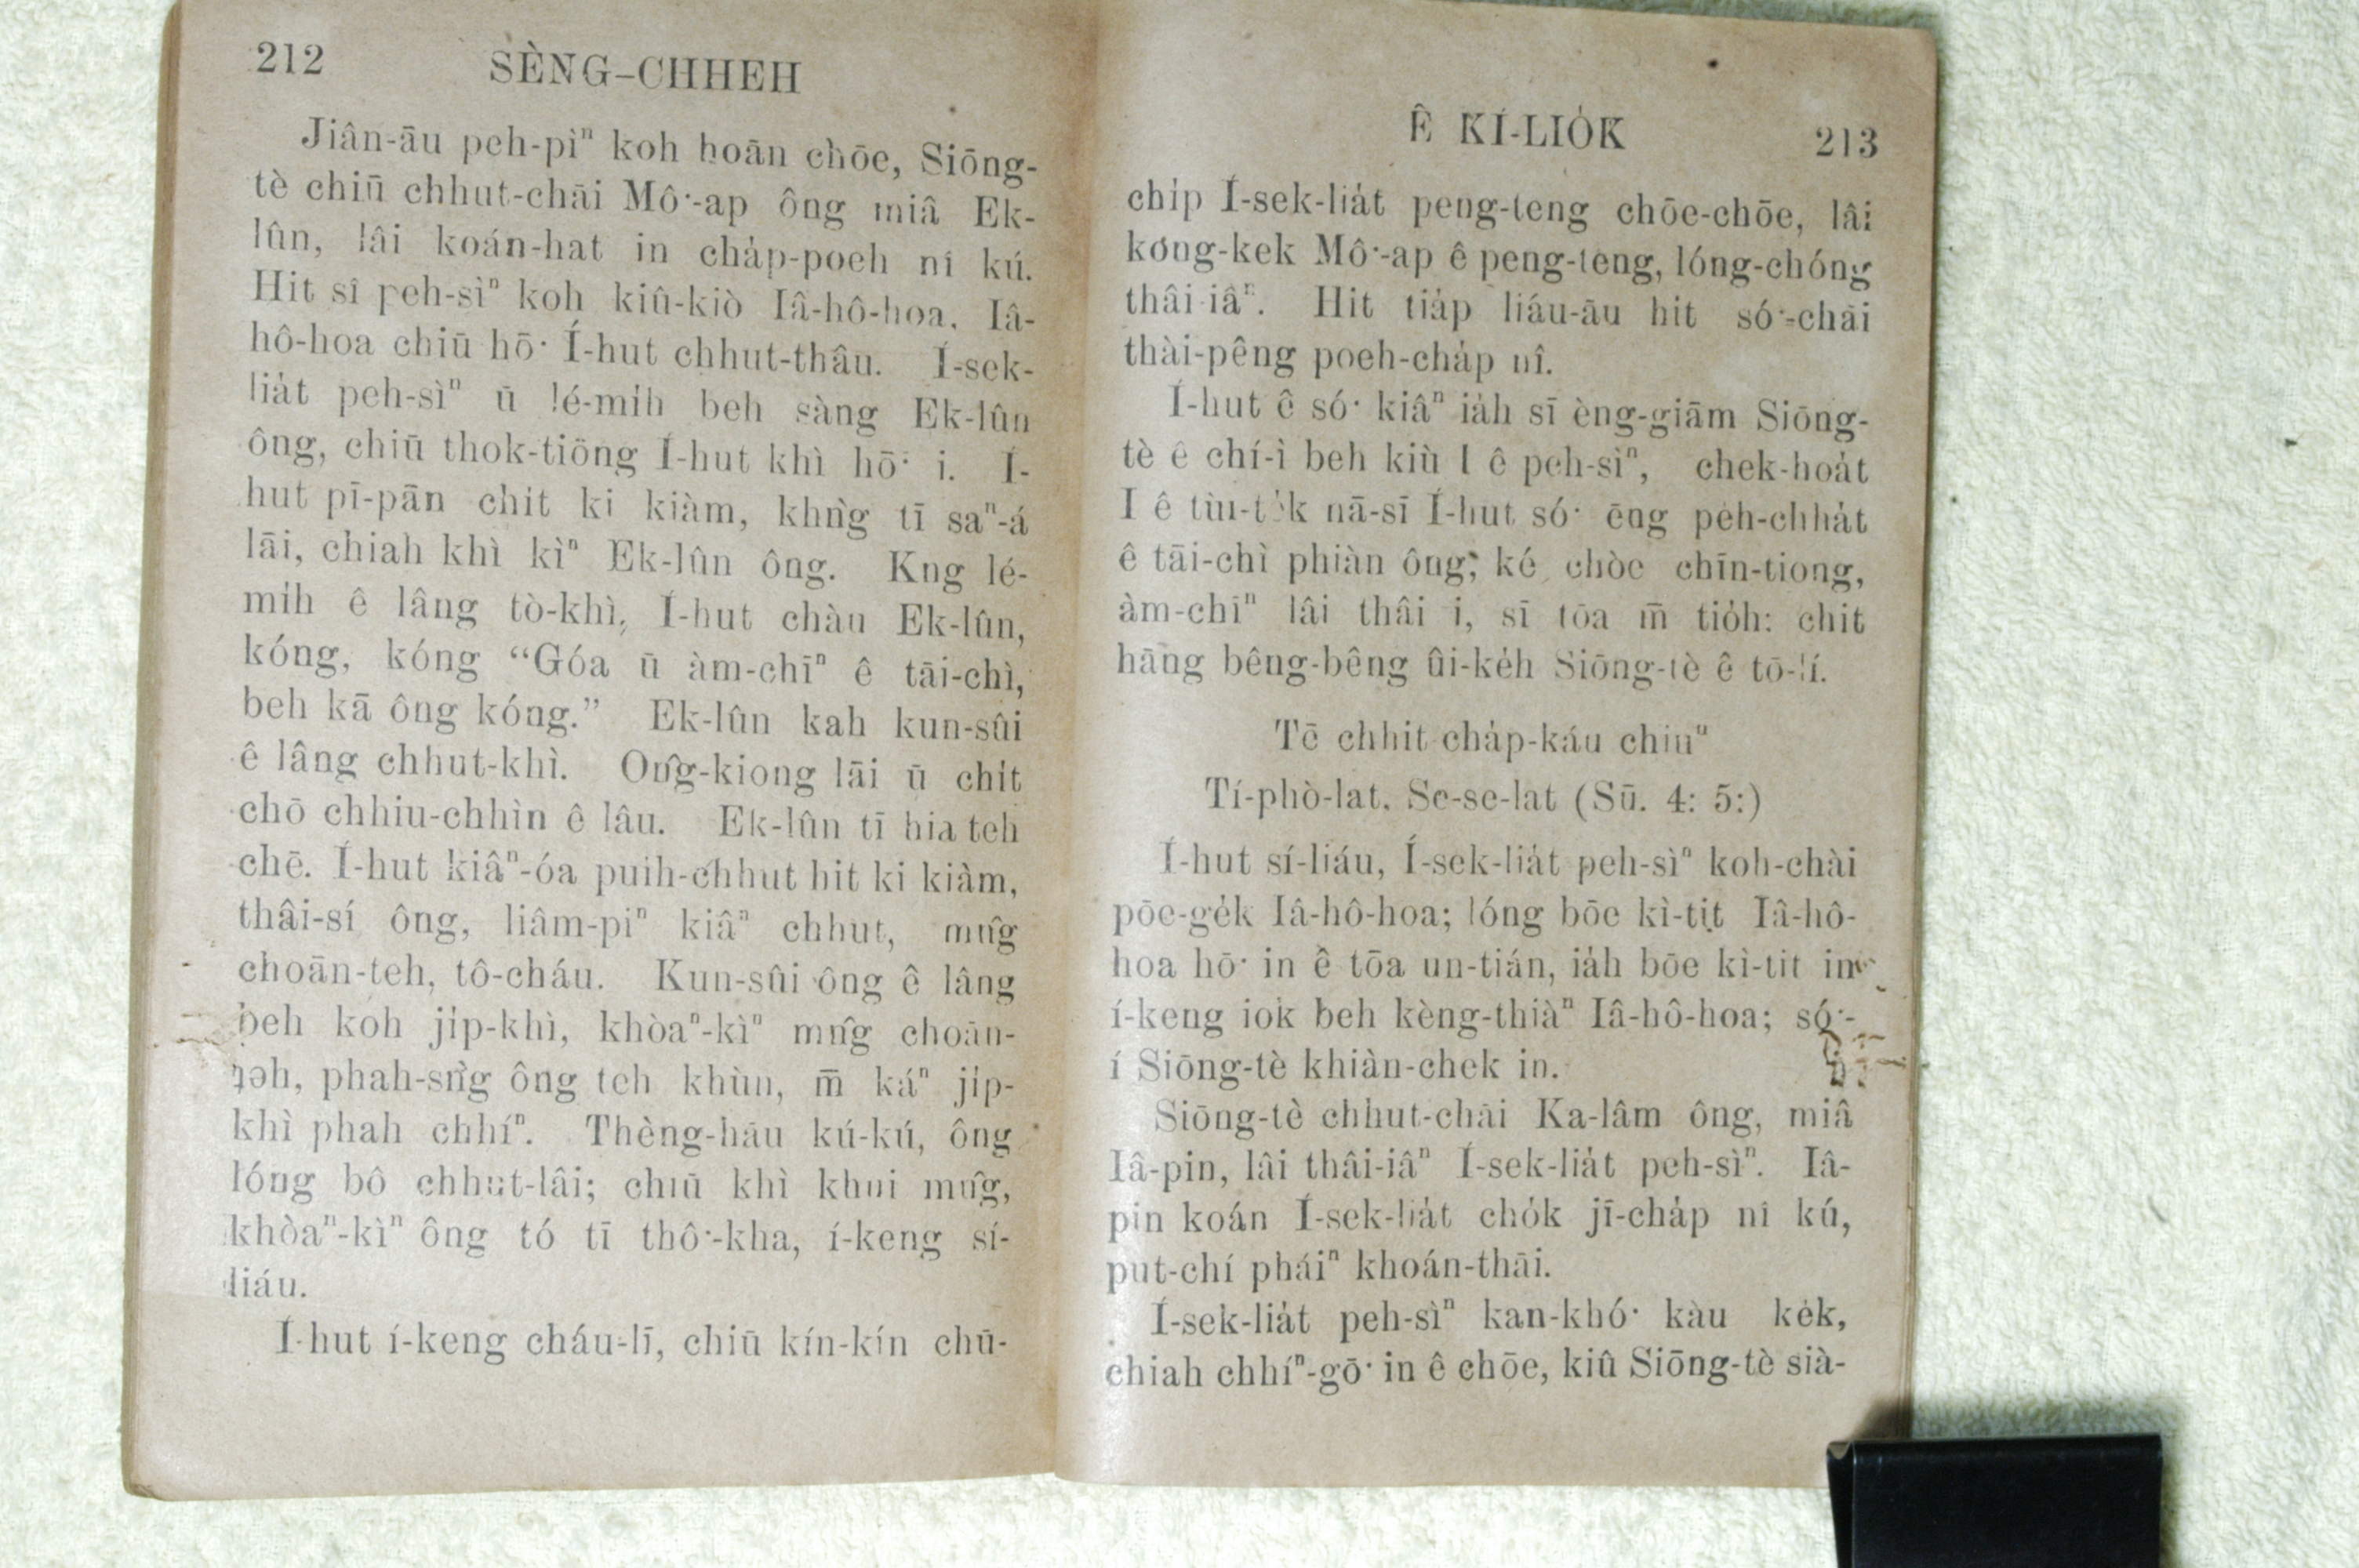 212 SÈNG-CHHEH
Jiân-āu peh-pìⁿ koh hoān chōe, Siōng-
tè chiū chhut-chāi Mô͘-ap ông miâ Ek-
lûn, lâi koán-hat in cha̍p-poeh nî kú.
Hit sî peh-sìⁿ koh kiû-kiò Iâ-hô-hoa. Iâ-
hô-hoa chiū hō͘ Í-hut chhut-thâu. Í-sek-
lia̍t peh-sìⁿ ū lé-mi̍h beh sàng Ek-lûn
ông, chiū thok-tiōng Í-hut khì hō͘ i. Í-
hut pī-pān chi̍t ki kiàm, khǹg tī saⁿ-á
lāi, chiah khì kìⁿ Ek-lûn ông. Kng lé-
mi̍h ê lâng tò-khì, Í-hut chàu Ek-lûn,
kóng, kóng “Góa ū àm-chīⁿ ê tāi-chì,
beh kā ông kóng.” Ek-lûn kah kun-sûi
ê lâng chhut-khì. Ôn̂g-kiong lāi ū chi̍t
chō chhiu-chhìn ê lâu. Ek-lûn tī hia teh
chē. Í-hut kiâⁿ-óa puih-chhut hit ki kiàm,
thâi-sí ông, liâm-piⁿ kiâⁿ chhut, mn̂g
choān-teh, tô-cháu. Kun-sûi ông ê lâng
beh koh ji̍p-khì, khòaⁿ-kìⁿ mn̂g choān-
teh, phah-sǹg ông teh khùn, m̄ káⁿ ji̍p-
khì phah chhíⁿ. Thèng-hāu kú-kú, ông
lóng bô chhut-lâi; chiū khì khui mn̂g,
khòaⁿ-kìⁿ ông tó tī thô͘-kha, í-keng sí-
liáu.
Í-hut í-keng cháu-lī, chiū kín-kín chū-
Ê KÍ-LIO̍K 213
chi̍p Í-sek-lia̍t peng-teng chōe-chōe, lâi
kong-kek Mô͘-ap ê peng-teng, lóng-chóng
thâi-iâⁿ. Hit tia̍p liáu-āu hit só͘-chāi
thài-pêng poeh-cha̍p nî.
Í-hut ê só͘ kiâⁿ ia̍h sī èng-giām Siōng-
tè ê chí-ì beh kiù I ê peh-sìⁿ, chek-hoa̍t
I ê tùi-te̍k nā-sī Í-hut só͘ ēng pe̍h-chha̍t
ê tāi-chì phiàn ông; ké chòe chīn-tiong,
àm-chīⁿ lâi thâi i, sī tōa m̄ tio̍h: chit
hāng bêng-bêng ûi-ke̍h Siōng-tè ê tō-lí.
Tē chhit-cha̍p-káu chiuⁿ
Tí-phò-lat, Se-se-lat (Sū. 4: 5:)
Í-hut sí-liáu, Í-sek-lia̍t peh-sìⁿ koh-chài
pōe-ge̍k Iâ-hô-hoa; lóng bōe kì-tit Iâ-hô-
hoa hō͘ in ê tōa un-tián, ia̍h bōe kì-tit in
í-keng iok beh kèng-thiàⁿ Iâ-hô-hoa; só͘-
í Siōng-tè khiàn-chek in.
Siōng-tè chhut-chāi Ka-lâm ông, miâ
Iâ-pin, lâi thâi-iâⁿ Í-sek-lia̍t peh-sìⁿ. Iâ-
pin koán Í-sek-lia̍t cho̍k jī-cha̍p nî kú,
put-chí pháiⁿ khoán-thāi.
Í-sek-lia̍t peh-sìⁿ kan-khó͘ kàu ke̍k,
chiah chhíⁿ-gō͘ in ê chōe, kiû Siōng-tè sià-